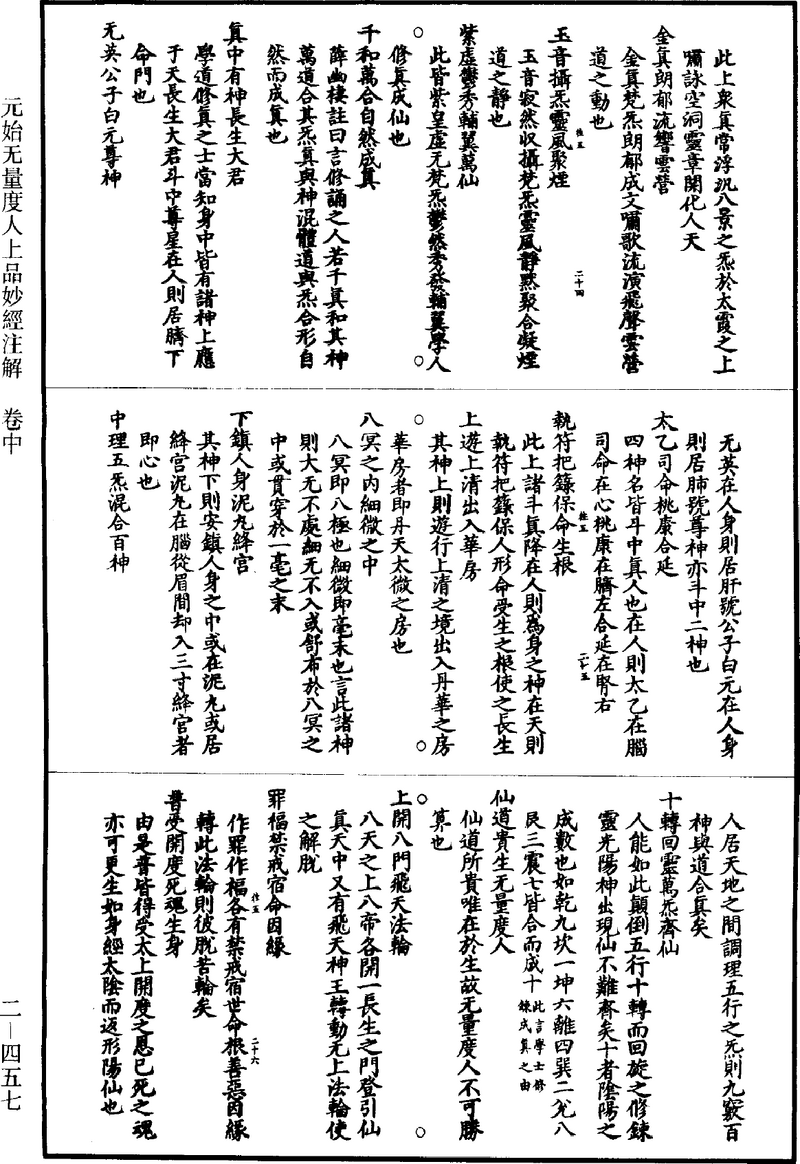 元始无量度人上品妙經注解　卷中
二—四五七
此上衆真常浮沉八景之炁於太霞之上
嘯詠空洞靈章開化人天
金真朗郁流響雲營
金真梵炁朗郁成文嘯歌流演飛聲雲營
道之動也
玉音攝炁靈風聚煙
玉音寂然收攝梵炁靈風靜默聚合凝煙
道之靜也
紫虛鬱秀輔翼萬仙
此皆紫皇虛无梵炁鬱然秀發輔翼學人
修真成仙也
千和萬合自然成真
薛幽棲註曰言修誦之人若千真和其神
萬道合其炁真與神混體道與炁合形自
然而成真也
真中有神長生大君
學道修真之士當知身中皆有諸神上應
于天長生大君斗中尊星在人則居臍下
命門也
无英公子白元尊神
二十四
无英在人身則居肝號公子白元在人身
則居肺號尊神亦斗中二神也
太乙司命桃康合延
四神名皆斗中真人也在人則太乙在腦
司命在心桃康在臍左合延在腎右
執符把籙保命生根
此上諸斗真降在人則爲身之神在天則
執符把籙保人形命受生之根使之長生
上遊上清出入華房
其神上則遊行上清之境出入丹華之房
華房者即丹天太微之房也
八冥之內細微之中
八冥即八極也細微即毫末也言此諸神
則大无不處細无不入或舒布於八冥之
中或貫穿於一毫之末
下鎮人身泥丸絳宮
其神下則安鎮人身之中或在泥丸或居
絳宮泥丸在腦從眉間却入三寸絳宮者
即心也
中理五炁混合百神
二十五
人居天地之間調理五行之炁則九竅百
神與道合真矣
十轉回靈萬炁齊仙
人能如此顛倒五行十轉而回旋之修鍊
靈光陽神出現仙不難齊矣十者陰陽之
成數也如乾九坎一坤六離四巽二兌八
艮三震七皆合而成十此言學士修鍊成真之由
仙道貴生无量度人
仙道所貴唯在於生故无量度人不可勝
筭也
上開八門飛天法輪
八天之上八帝各開一長生之門登引仙
真天中又有飛天神王轉動无上法輪使
之解脫
罪福禁戒宿命因緣
作罪作福各有禁戒宿世命根善惡因緣
轉此法輪則彼脫苦輪矣
普受開度死魂生身
由是普皆得受太上開度之恩已死之魂
亦可更生如身經太陰而返形陽仙也
二十六